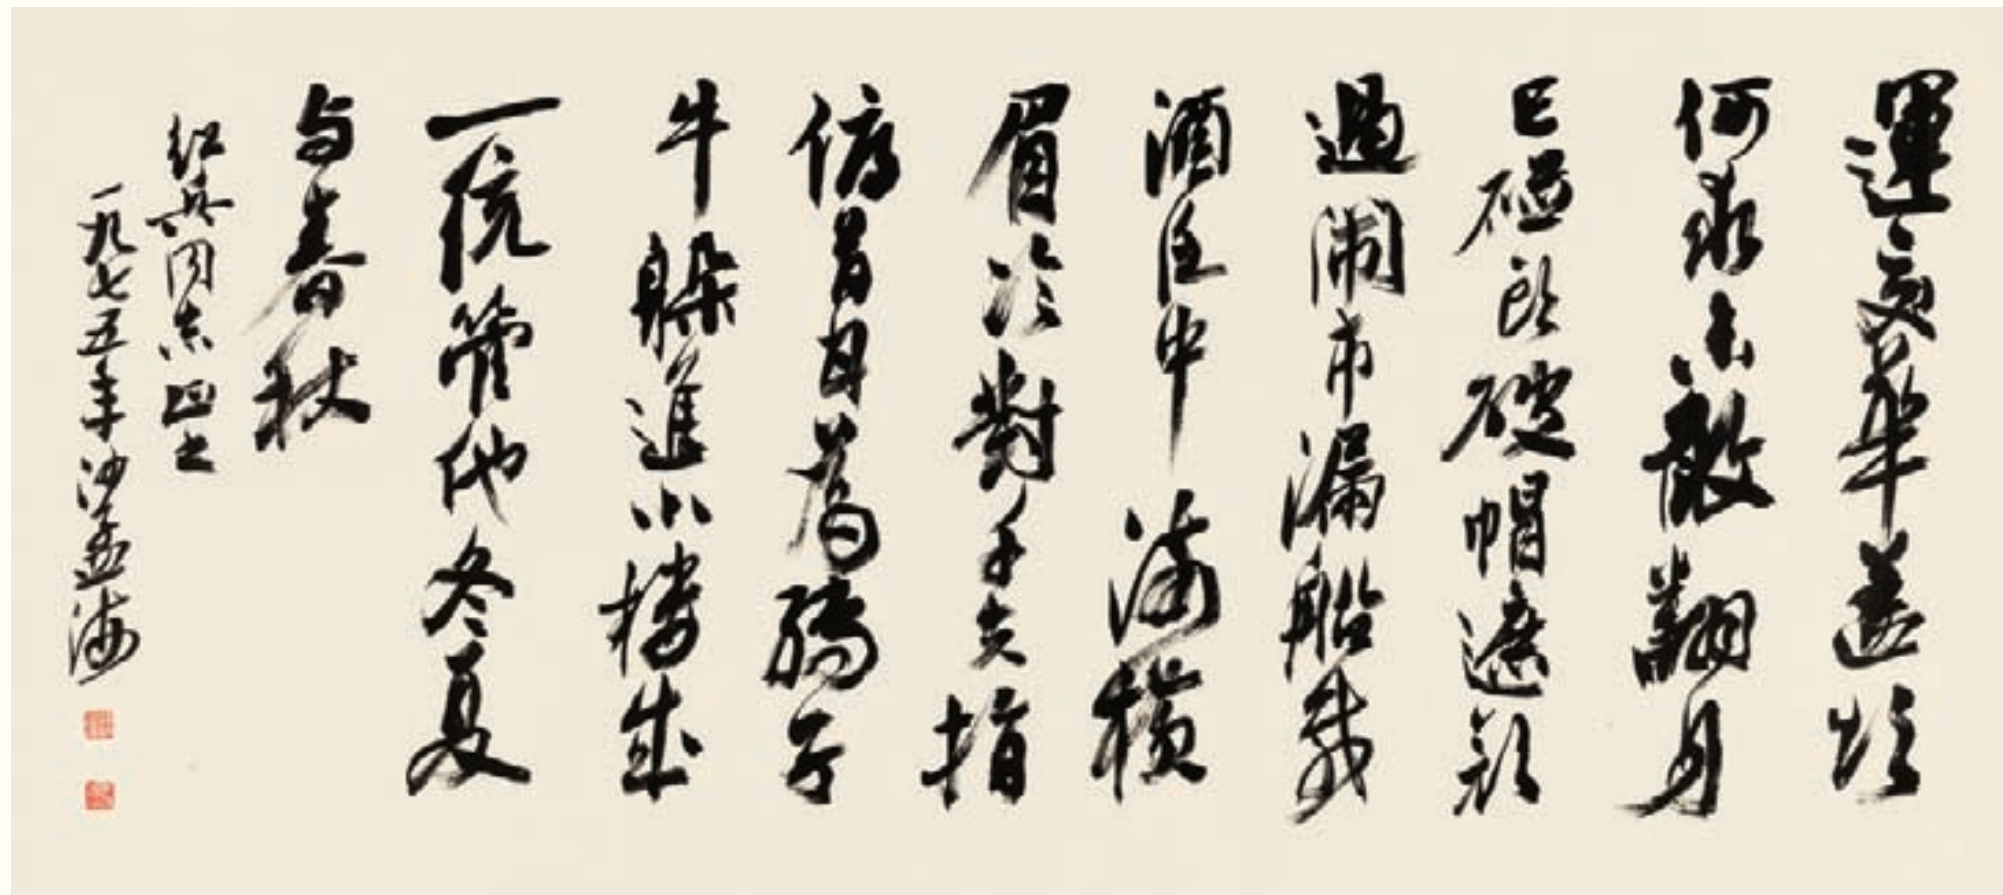 運交華蓋欲
何求未敢翻身
已碰頭破帽遮顏
過鬧市漏船載
酒泛中流橫
眉冷對千夫指
俯首甘為孺子
牛躲進小樓成
一統管他冬夏
与春秋
紅兵同志正之
一九七五年沙孟海